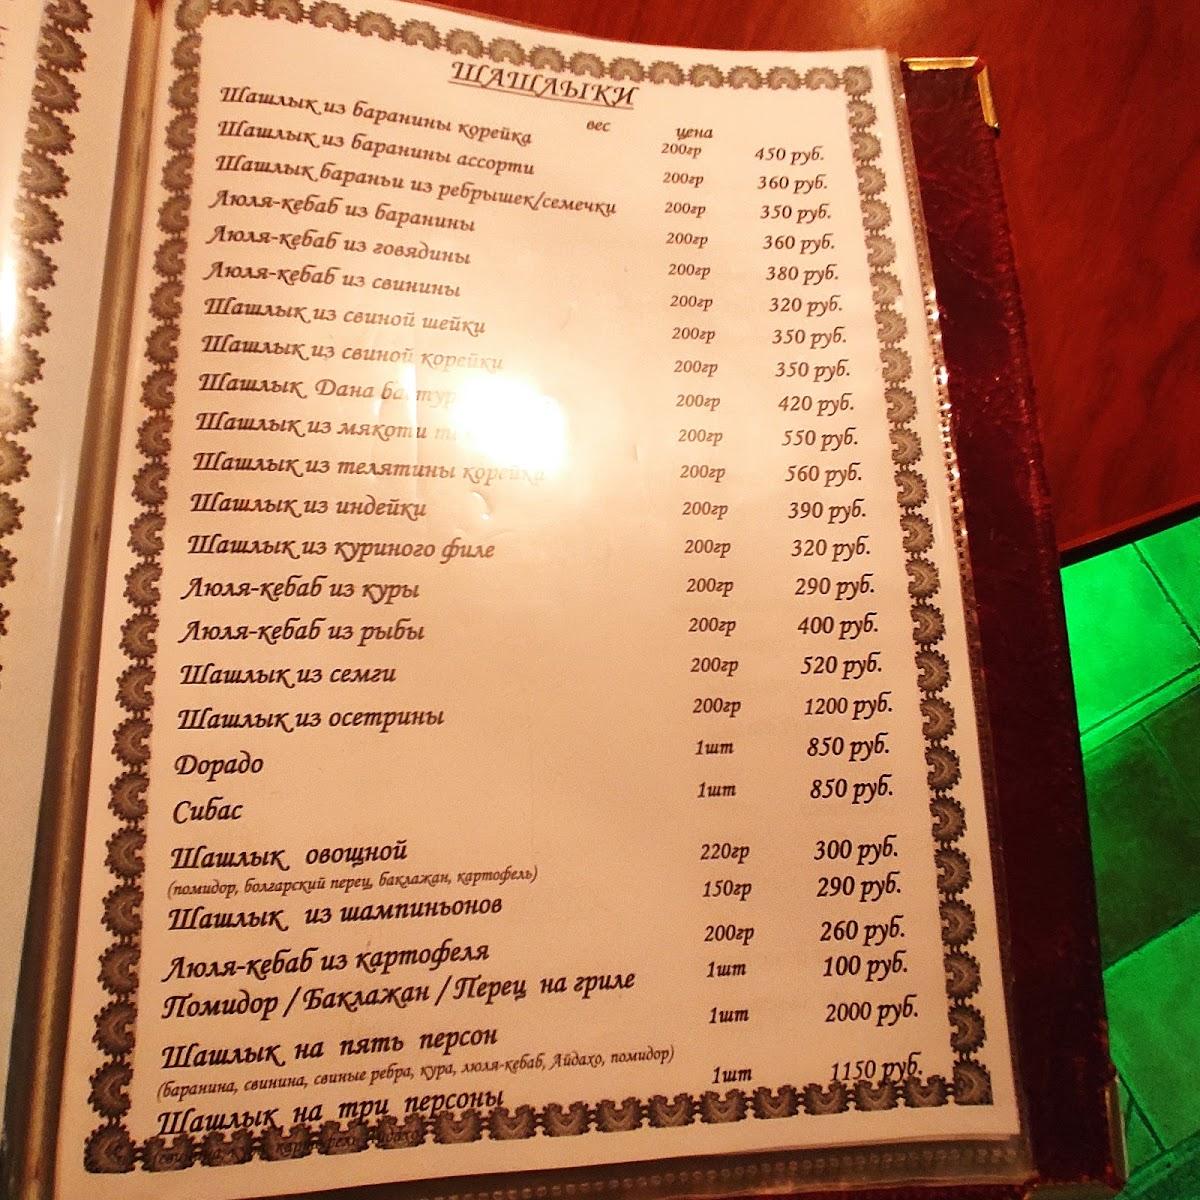 ШАШЛЫКИ
вес цена
Шашлык из баранины корейка 200гр 450 руб.
Шашлык из баранины ассорти 200гр 360 руб.
Шашлык бараньи из ребрышек/семечки 200гр 350 руб.
Люля-кебаб из баранины 200гр 360 руб.
Люля-кебаб из говядины 200гр 380 руб.
Люля-кебаб из свинины 200гр 320 руб.
Шашлык из свиной шейки 200гр 350 руб.
Шашлык из свиной корейки 200гр 350 руб.
Шашлык Дана 200гр 420 руб.
Шашлык из мякоти 200гр 550 руб.
Шашлык из телятины корейка 200гр 560 руб.
Шашлык из индейки 200гр 390 руб.
Шашлык из куриного филе 200гр 320 руб.
Люля-кебаб из куры 200гр 290 руб.
Люля-кебаб из рыбы 200гр 400 руб.
Шашлык из семги 200гр 520 руб.
Шашлык из осетрины 200гр 1200 руб.
Дорадо 1шт 850 руб.
Сибас 1шт 850 руб.
Шашлык овощной 220гр 300 руб.
(помидор, болгарский перец, баклажан, картофель)
Шашлык из шампиньонов 150гр 290 руб.
Люля-кебаб из картофеля 200гр 260 руб.
Помидор / Баклажан / Перец на гриле 1шт 100 руб.
Шашлык на пять персон 1шт 2000 руб.
(баранина, свинина, свиные ребра, кура, люля-кебаб, Айдахо, помидор)
Шашлык на три персоны 1шт 1150 руб.